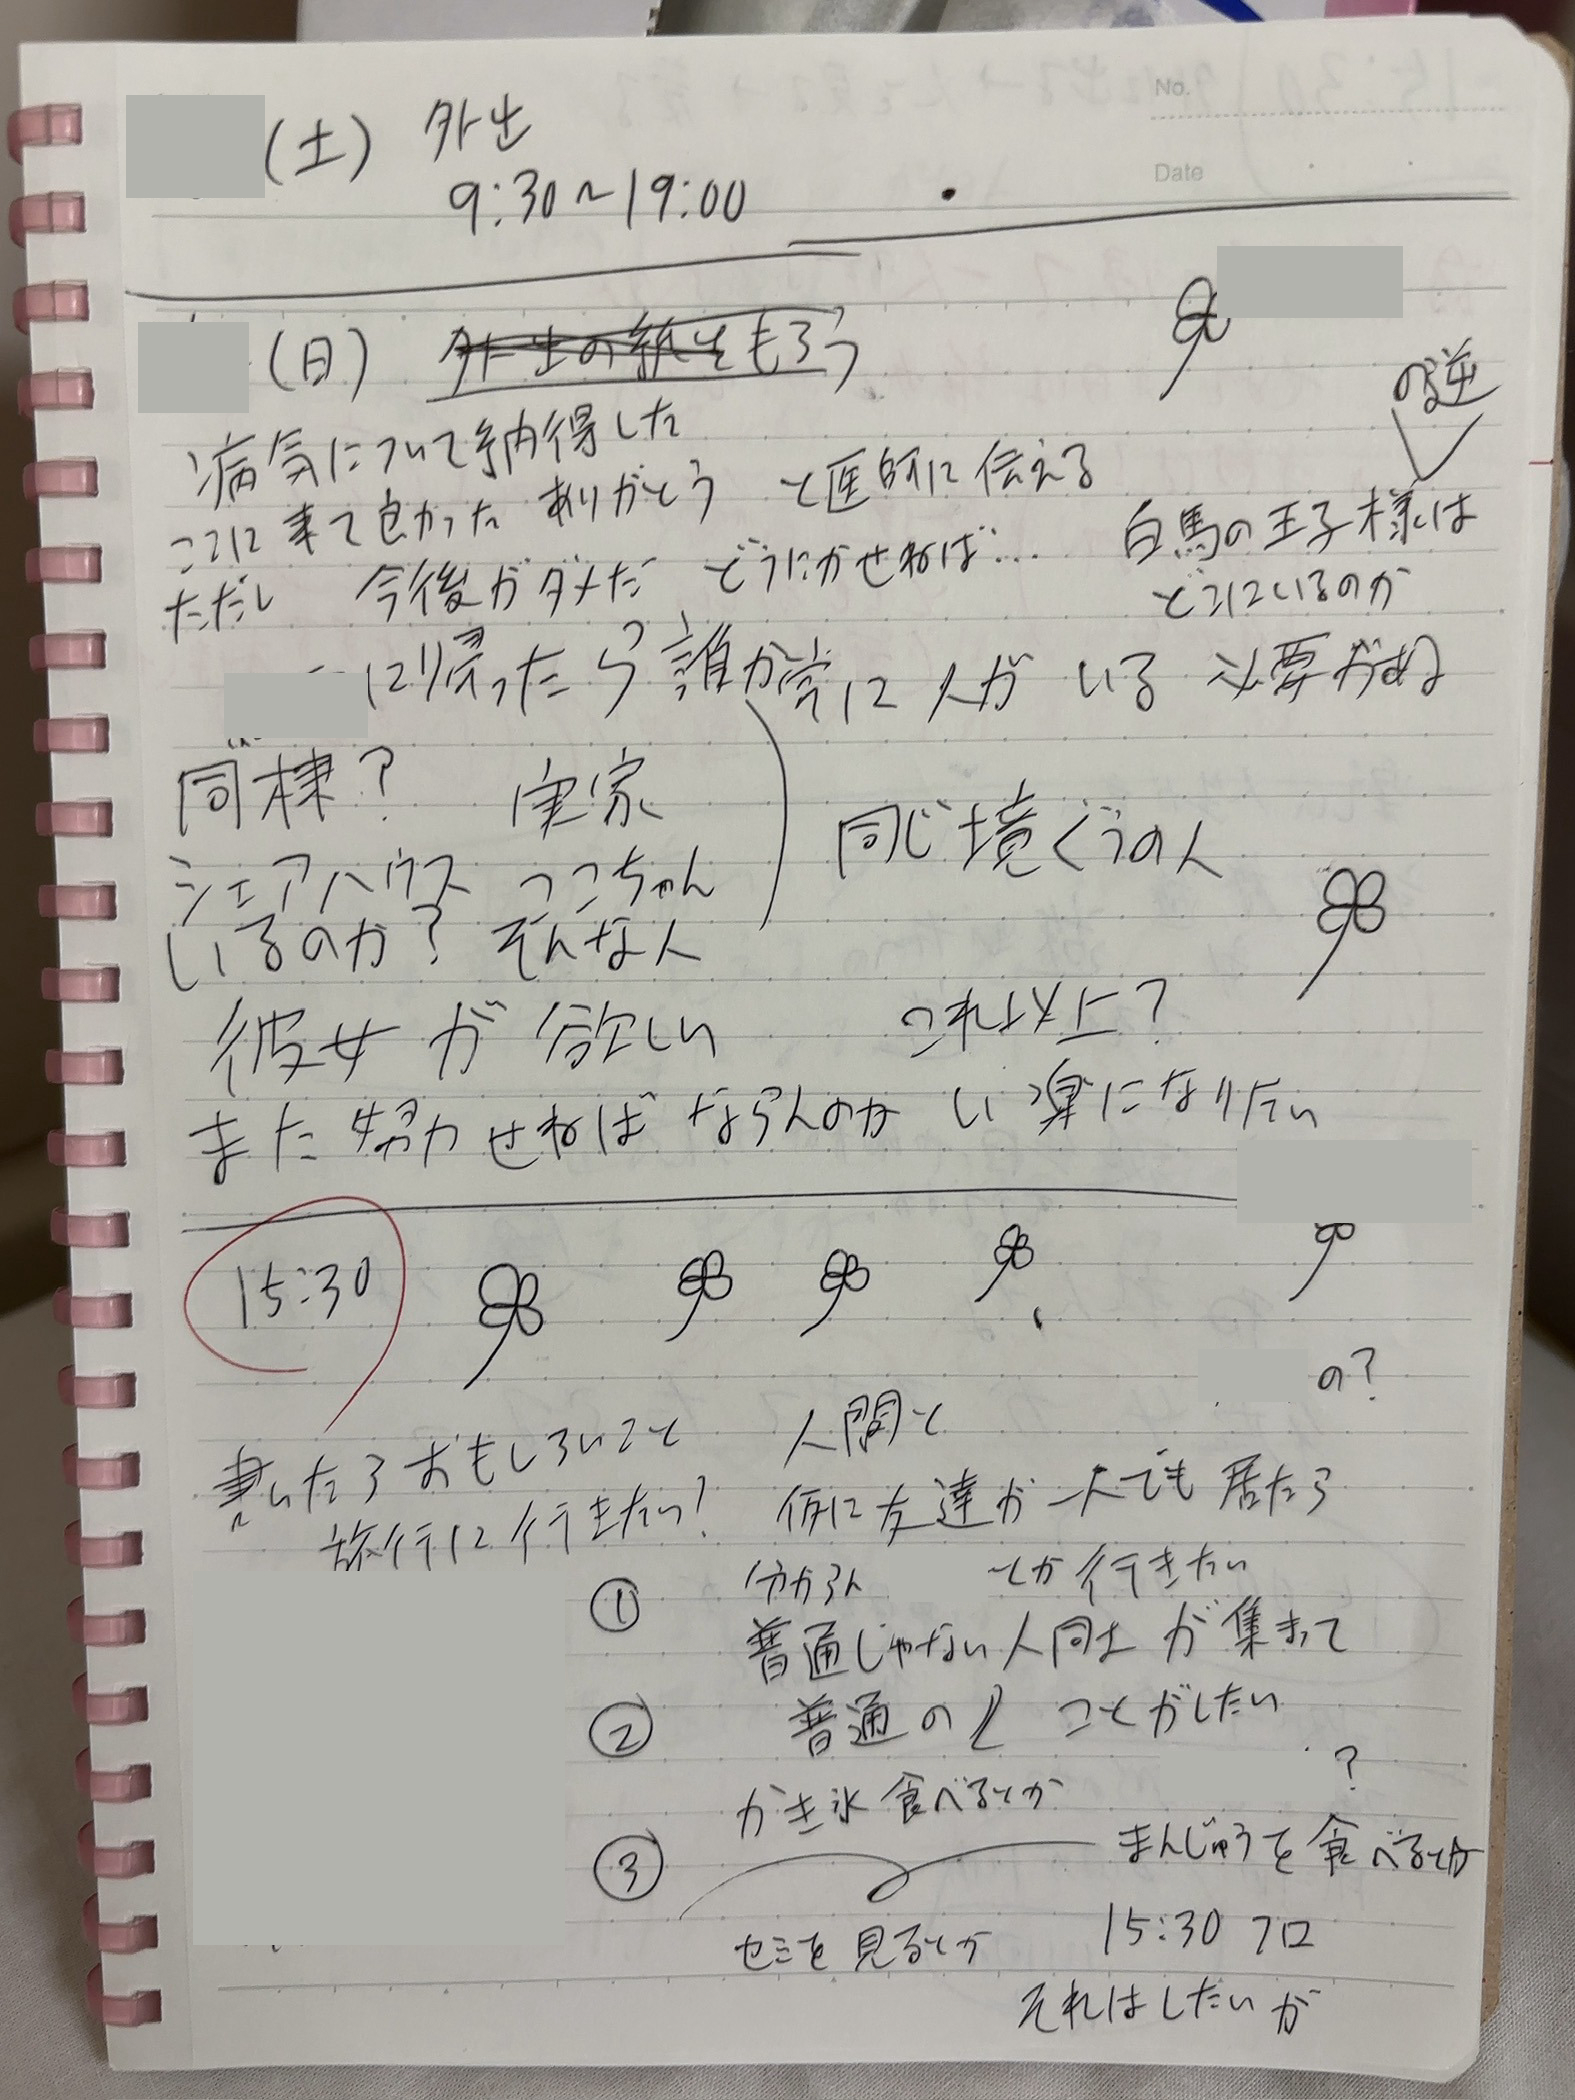 No.
Date
(土) 外出
9:30〜19:00
(日) 外出の紙をもらう
の逆
病気について納得した
ここに来て良かった ありがとう と医師に伝える
白馬の王子様は
どこにいるのか
ただし 今後がダメだ どうにかせねば…
に帰ったら 誰か常に人が いる 必要がある
同棟? 実家
シェアハウス ここちゃん
いるのか? そんな人
同じ境ぐうの人
彼女が欲しい これ以上?
また努力せねばならんのか い 楽になりたい
15:30
の?
書いたらおもしろいこと 人間と
旅行に行きたい! 仮に友達が一人でも居たら
① 分からん とか行きたい
普通じゃない人同士が集まって
② 普通の ことがしたい
?
かき氷食べるとか
③ まんじゅうを食べるとか
セミを見るとか 15:30 フロ
それはしたいが